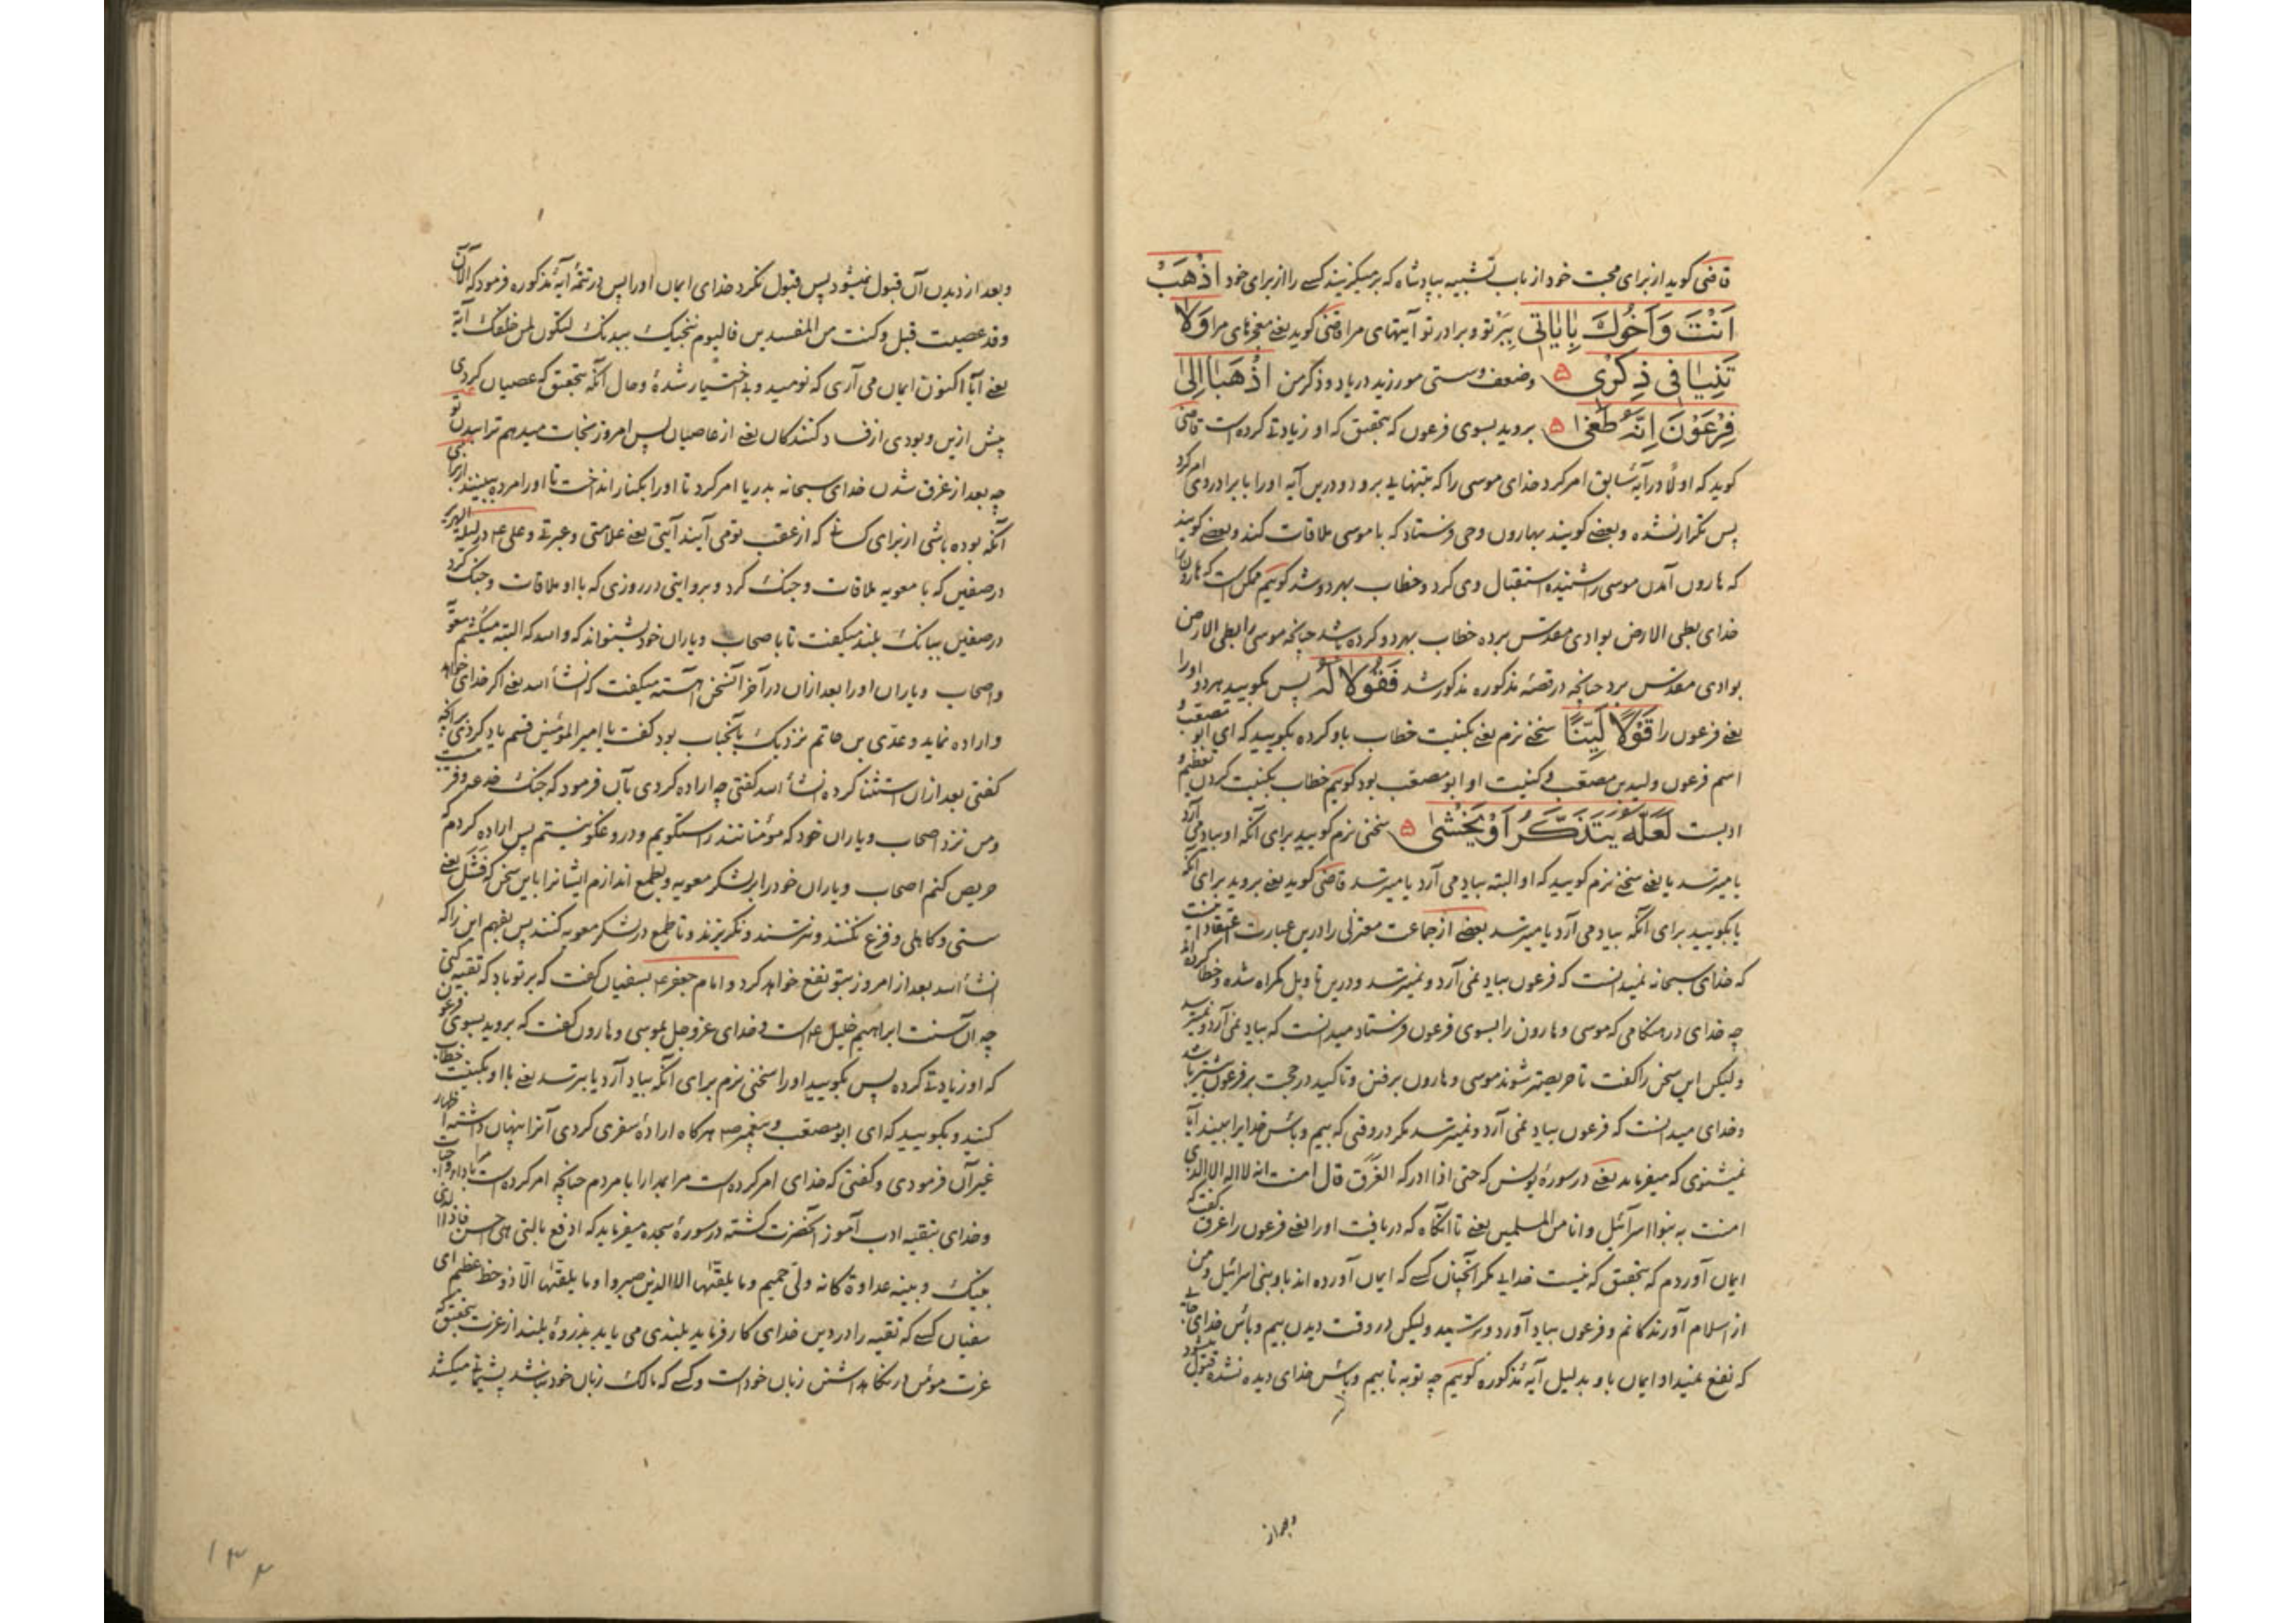 قاضی کوید از برای محبت خود از باب تشبیه بپادشاه که برمیکزیند کسے را از برای خود اذْهَبْ
اَنْتَ وَاَخُوكَ بِاٰیاتی ببر تو و برادر تو آیتهای مرا قاضی کوید یعنے معجزهای مرا وَلا
تَنِیَا فی ذِکْری ۵ و ضعف و سستی مورزید در یاد و ذکر من اذْهَبَا اِلیٰ
فِرْعَوْنَ اِنَّهُ طَغیٰ ۵ بروید بسوی فرعون که بتحقیق که او زیادتے کرده است قاضی
کوید که اولًا در آیهٔ سابق امر کرد خدای موسی را که بتنهایے برود و درین آیه او را با برادر وی امر کرد
پس تکرار نشده و بعضے کویند بهارون وحی فرستاد که با موسی ملاقات کند و بعضے کویند
که هارون آمدن موسی را شنیده استقبال وی کرد و خطاب بهر دو شد کوئیم ممکن است که هارون را
خدای بطی الارض بوادی مقدس برده خطاب بهر دو کرده باشد چنانچه موسی را بطی الارض
بوادی مقدس برد چنانچه در قصهٔ مذکوره مذکور شد فَقُولا لَهُ پس بکویید هر دو او را
یعنے فرعون را قَوْلًا لَیِّنًا سخنے نرم یعنے بکنیت خطاب باو کرده بکویید که ای ابو مصعب و
اسم فرعون ولید بن مصعب و کنیت او ابو مصعب بود کوئیم خطاب بکنیت کردن تعظیم و
ادبست لَعَلَّهُ یَتَذَکَّرُ اَوْ یَخْشیٰ ۵ سخنی نرم کویید برای آنکه او بیاد می آرد
یا میترسد یا یعنے سخنے نرم کویید که او البته بیاد می آرد یا میترسد قاضی کوید یعنے بروید برای آنکه
یا بکویید برای آنکه بیاد می آرد یا میترسد بعضے از جماعت معتزلی را درین عبارت اعتقاد اینست
که خدای سبحانه نمیدانست که فرعون بیاد نمی آرد و نمیترسد و درین تاویل کمراه شده و خطا کرده اند
چه خدای در هنکامی که موسی و هارون را بسوی فرعون فرستاد میدانست که بیاد نمی آرد و نمیترسد
ولیکن این سخن را کفت تا حریصتر شوند موسی و هارون برفتن و تاکید در حجت بر فرعون بیشتر باشد
و خدای میدانست که فرعون بیاد نمی آرد و نمیترسد مکر در وقتی که بیم و بائس خدایرا ببیند آیا
نمیشنوی که میفرماید یعنے در سورهٔ یونس که حتی اذا ادرکه الغرق قال امنت انه لا اله الا الذی
امنت به بنوا اسرآئیل و انا من المسلمین یعنے تا آنکاه که دریافت او را یعنے فرعون را غرق کفت که
ایمان آوردم که بتحقیق که نیست خدایے مکر آنچنان کسے که ایمان آورده اند باو بنی اسرائیل و من
از اسلام آورندکانم و فرعون بیاد آورد و ترسید ولیکن در وقت دیدن بیم و بائس خدای جایے
که نفع نمیداد ایمان باو بدلیل آیهٔ مذکوره کوئیم چه توبه تا بیم و بائس خدای دیده نشده قبول میشود
و بعد از
و بعد از دیدن آن قبول نمیشود پس قبول نکرد خدای ایمان او را پس در تتمهٔ آیهٔ مذکوره فرمود که آلآن
وقد عصیت قبل وکنت من المفسدین فالیوم ننجیک ببدنک لتکون لمن خلفک آیة
یعنے آیا اکنون ایمان می آری که نومید و بے اختیار شدهٔ و حال آنکه بتحقیق که عصیان کردی
پیش ازین و بودی از فساد کنندکان یعنے از عاصیان پس امروز نجات میدهم ترا ببدن تو
چه بعد از غرق شدن خدای سبحانه بدریا امر کرد تا او را بکنار انداخت تا او را مرده ببینند از برای
آنکه بوده باشی از برای کسانے که از عقب تو می آیند آیتی یعنے علامتی و عبرتے و علی ع در لیلة الهریر
در صفین که با معویه ملاقات و جنک کرد و بروایتی در روزی که با او ملاقات و جنک کرد
در صفین ببانک بلند میکفت تا باصحاب و یاران خود بشنواند که والله که البته میکشم معویه
و اصحاب و یاران او را بعد ازان در آخر آنسخن آهسته میکفت که انشاٴ الله یعنے اکر خدای خواهد
و اراده نماید و عدی بن حاتم نزدیک بآنجناب بود کفت یا امیر المؤمنین قسم یاد کردی بر آنچه
کفتی بعد ازان استثنا کرده انشاٴ الله کفتی چه اراده کردی بآن فرمود که جنک خدعه و فریبست
و من نزد اصحاب و یاران خود که مؤمنانند راستکویم و دروغکو نیستم پس اراده کردم که
حریص کنم اصحاب و یاران خود را بر لشکر معویه و بطمع اندازم ایشانرا باین سخن که فشل یعنے
سستی و کاهلی و فزع نکنند و نترسند و نکریزند و تا طمع در لشکر معویه کنند پس بفهم این را که
انشاٴ الله بعد از امروز بتو نفع خواهد کرد و امام جعفر ع بسفیان کفت که بر تو باد که تقیه کنی
چه آن سنت ابراهیم خلیل ع است و خدای عزوجل بموسی و هارون کفت که بروید بسوی فرعون
که او زیادتے کرده پس بکویید او را سخنی نرم برای آنکه بیاد آرد یا بترسد یعنے با او بکنیت خطاب
کنید و بکویید که ای ابو مصعب و پیغمبر ص هرکاه ارادهٔ سفری کردی آنرا پنهان داشته اظهار
غیر آن فرمودی و کفتی که خدای امر کرده است مرا بمدارا با مردم چنانچه امر کرده است باداء واجبات
و خدای بتقیه ادب آموز آنحضرت کشته در سورهٔ سجده میفرماید که ادفع بالتی هی احسن فاذا الذی
بینک و بینه عداوة کانه ولی حمیم و ما یلقیها الا الذین صبروا و ما یلقیها الا ذو حظ عظیم ای
سفیان کسے که تقیه را در دین خدای کار فرماید بلندی می یابد بذروهٔ بلند از عزت بتحقیق که
عزت مومن در نکاهداشتن زبان خود است و کسے که مالک زبان خود نباشد پشیمانے میکشد
۱۳۲